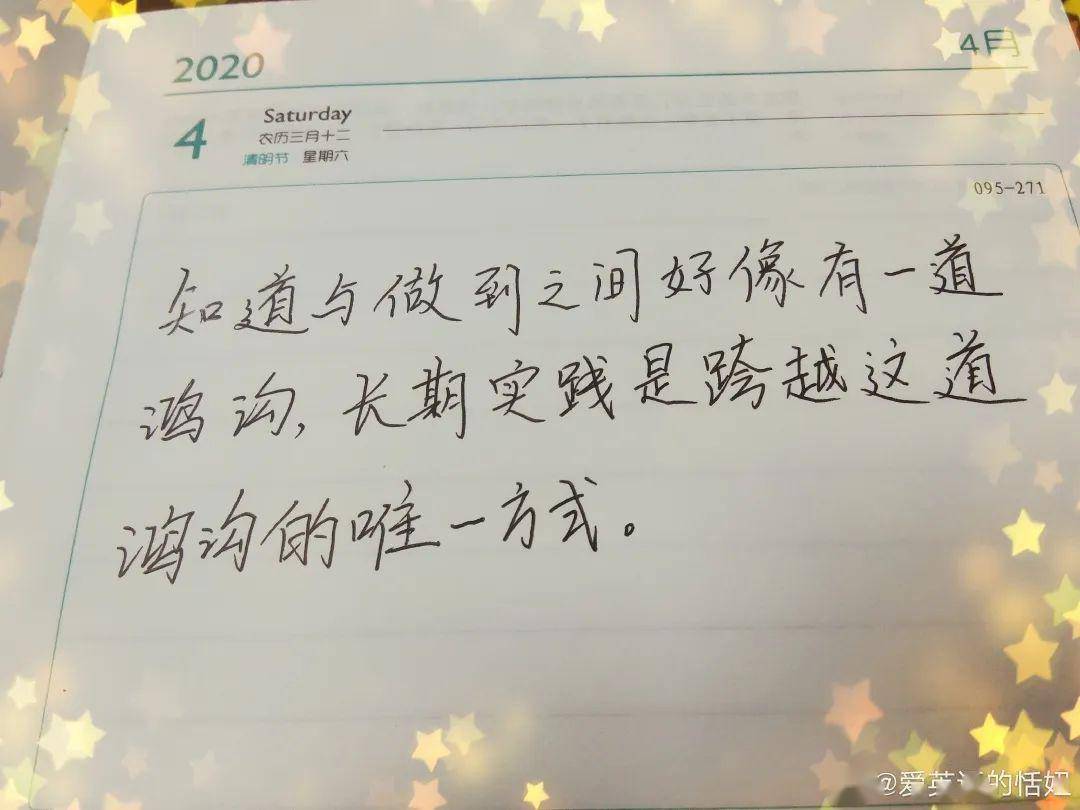 2020
4月
4
Saturday
农历三月十二
清明节 星期六
095-271
知道与做到之间好像有一道
鸿沟,长期实践是跨越这道
鸿沟的唯一方式。
@爱英 的恬妞